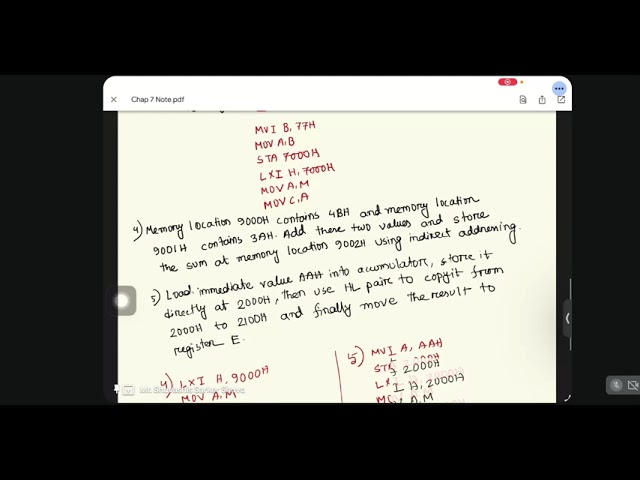 Chap 7 Note.pdf
MVI B, 77H
MOV A,B
STA 7000H
LXI H, 7000H
MOV A,M
MOV C,A
4) Memory location 9000H contains 4BH and memory location
9001H contains 3AH. Add these two values and store
the sum at memory location 9002H using indirect addressing.
5) Load immediate value AAH into accumulator, store it
directly at 2000H, then use HL pair to copy it from
2000H to 2100H and finally move the result to
register E.
4) LXI H, 9000H
MOV A,M
5) MVI A, AAH
2000H
I H, 2000H
A,M